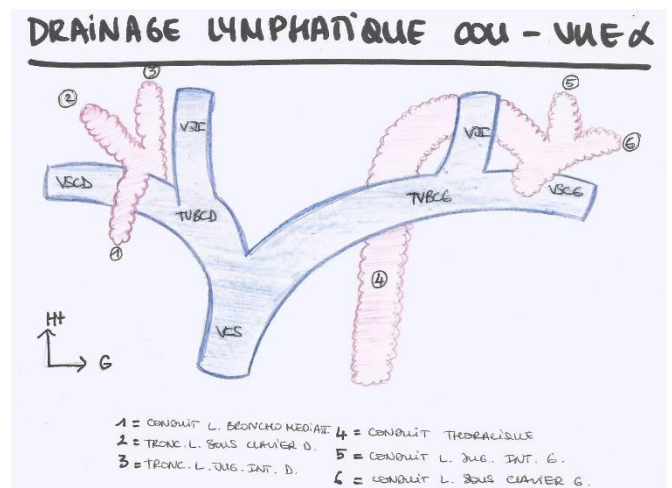 DRAINAGE LYMPHATIQUE COU - VUE α
3
5
2
6
VJI
VJI
VSCD
VSCG
TVBCD
TVBCG
1
4
VCS
Ht
G
1 = CONDUIT L. BRONCHO MEDIAST.
2 = TRONC. L. SOUS CLAVIER D.
3 = TRONC. L. JUG. INT. D.
4 = CONDUIT THORACIQUE
5 = CONDUIT L. JUG. INT. G.
6 = CONDUIT L. SOUS CLAVIER G.